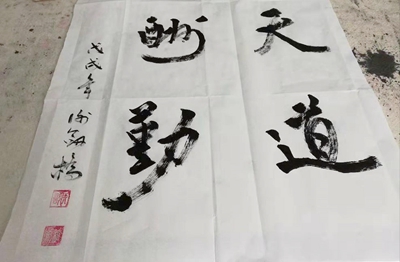 天道
酬勤
戊戌年